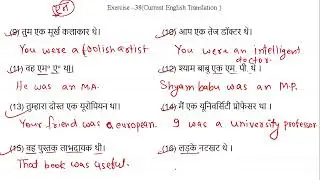 Exercise -38(Current English Translation )
(9) तुम एक मूर्ख कलाकार थे।
(10) आप एक तेज डॉक्टर थे।
You were a foolish artist
You were an intelligent doctor.
(11) वह एम० ए० था।
(12) श्याम बाबू एक एम. पी. थे।
He was an M.A.
Shyam babu was an M.P.
(13) तुम्हारा दोस्त एक यूरोपियन था।
(14) मैं एक यूनिवर्सिटी प्रोफेसर था।
Your friend was a european.
I was a university professor.
(15) वह पुस्तक लाभदायक थी।
(16) लड़के नटखट थे।
That book was useful.